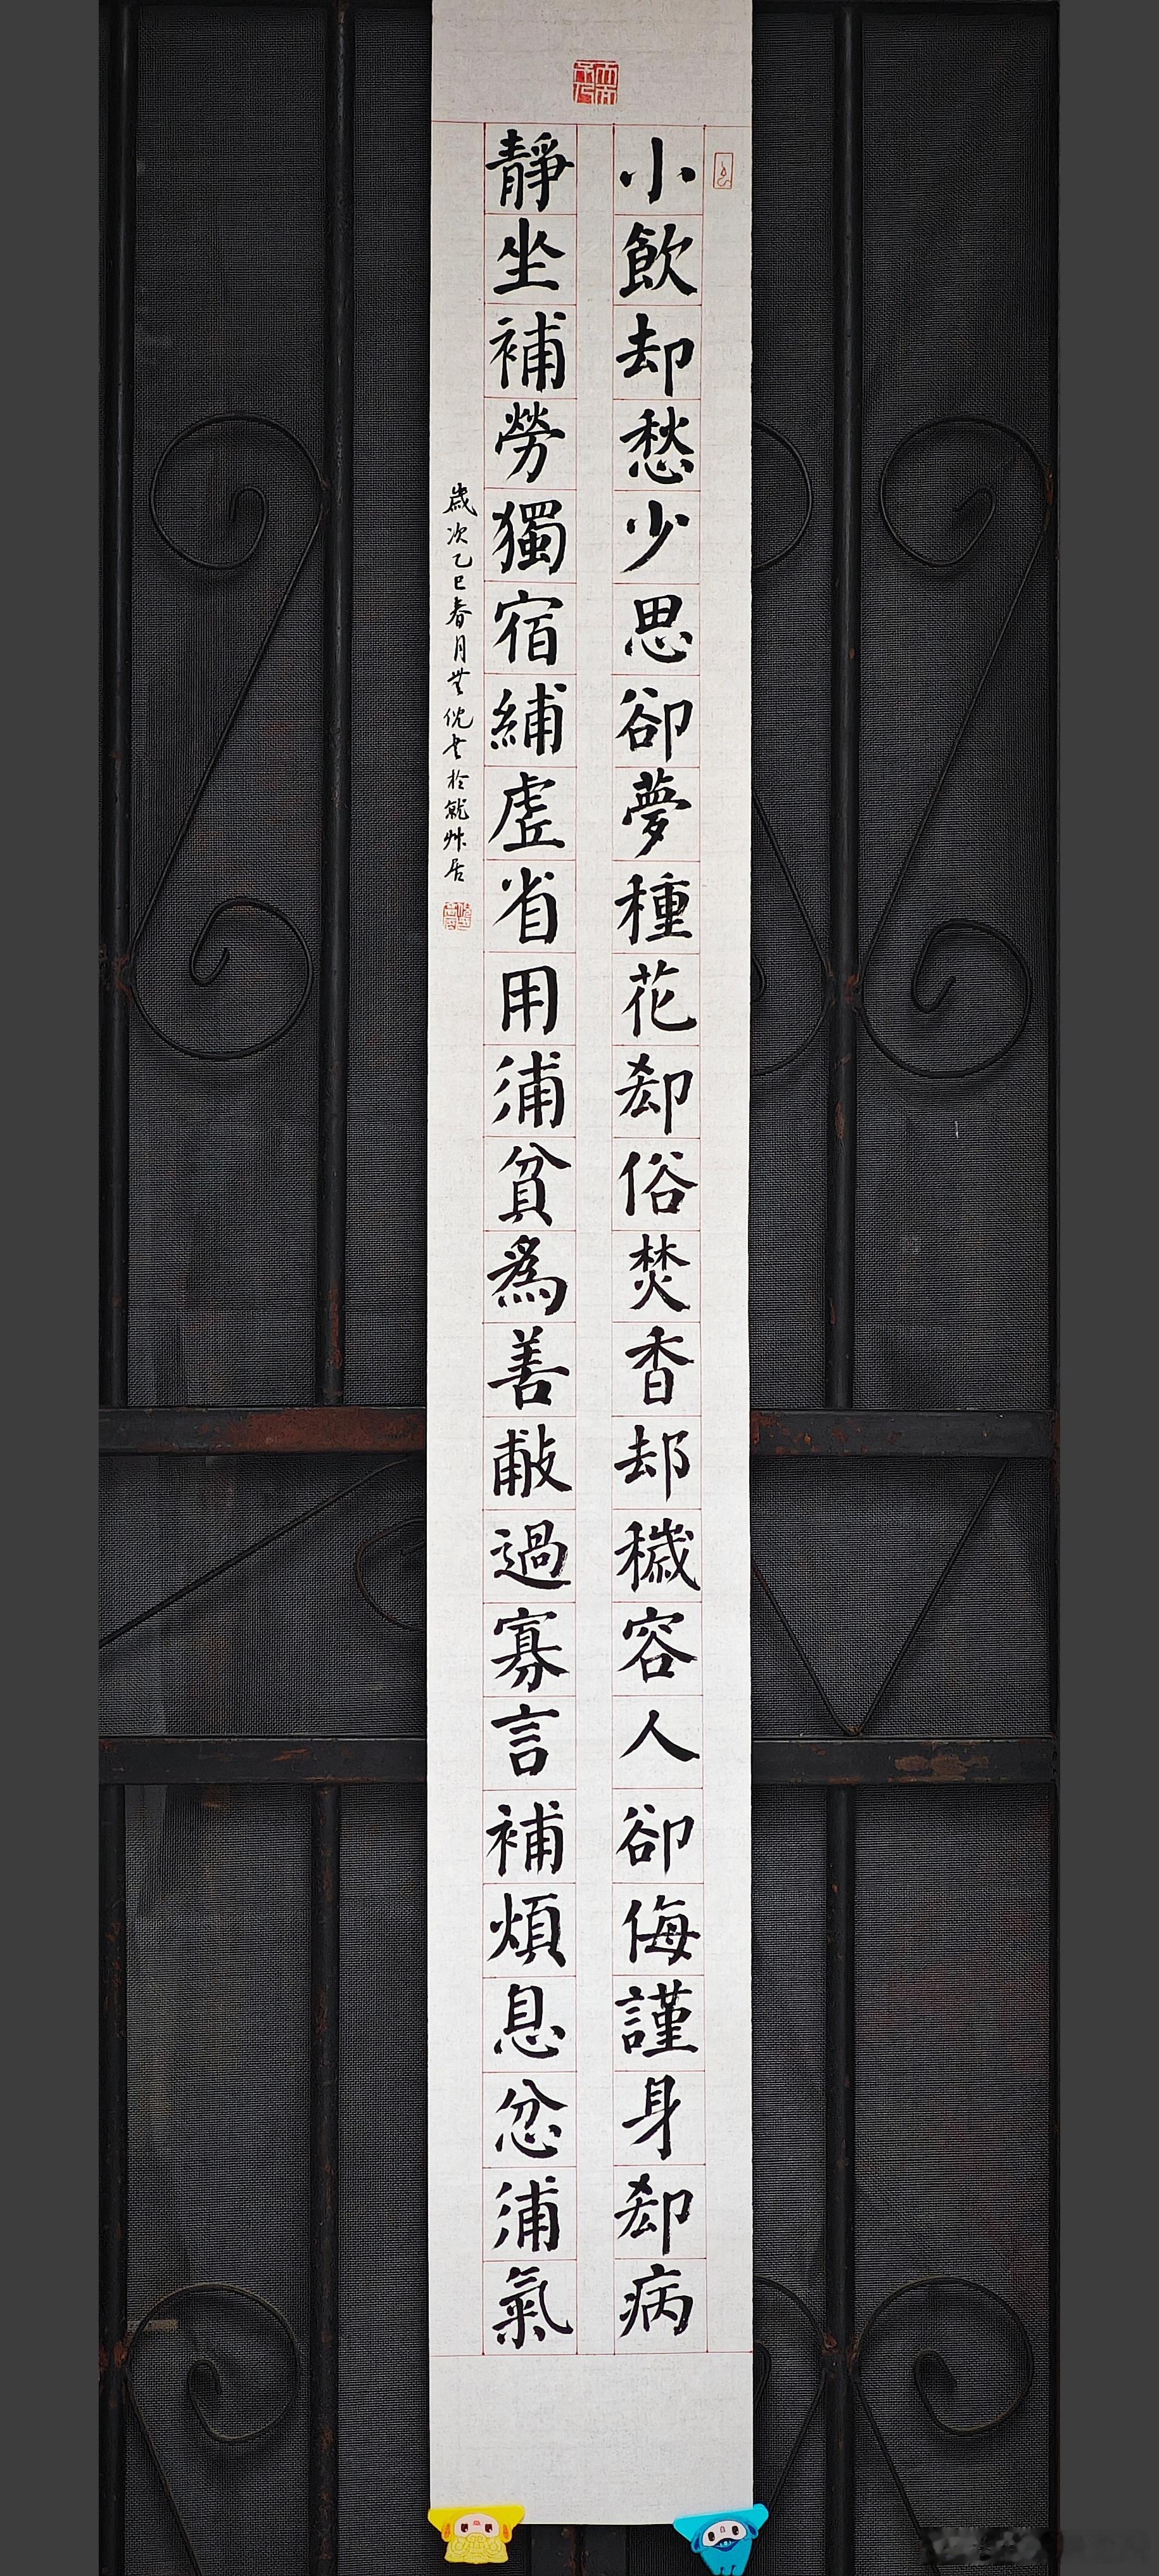 小飲却愁少思卻夢種花卻俗焚香却穢容人卻侮謹身卻病
靜坐補勞獨宿補虛省用補貧為善補過寡言補煩息忿補氣
歲次乙巳春月 倪 書於就艸居